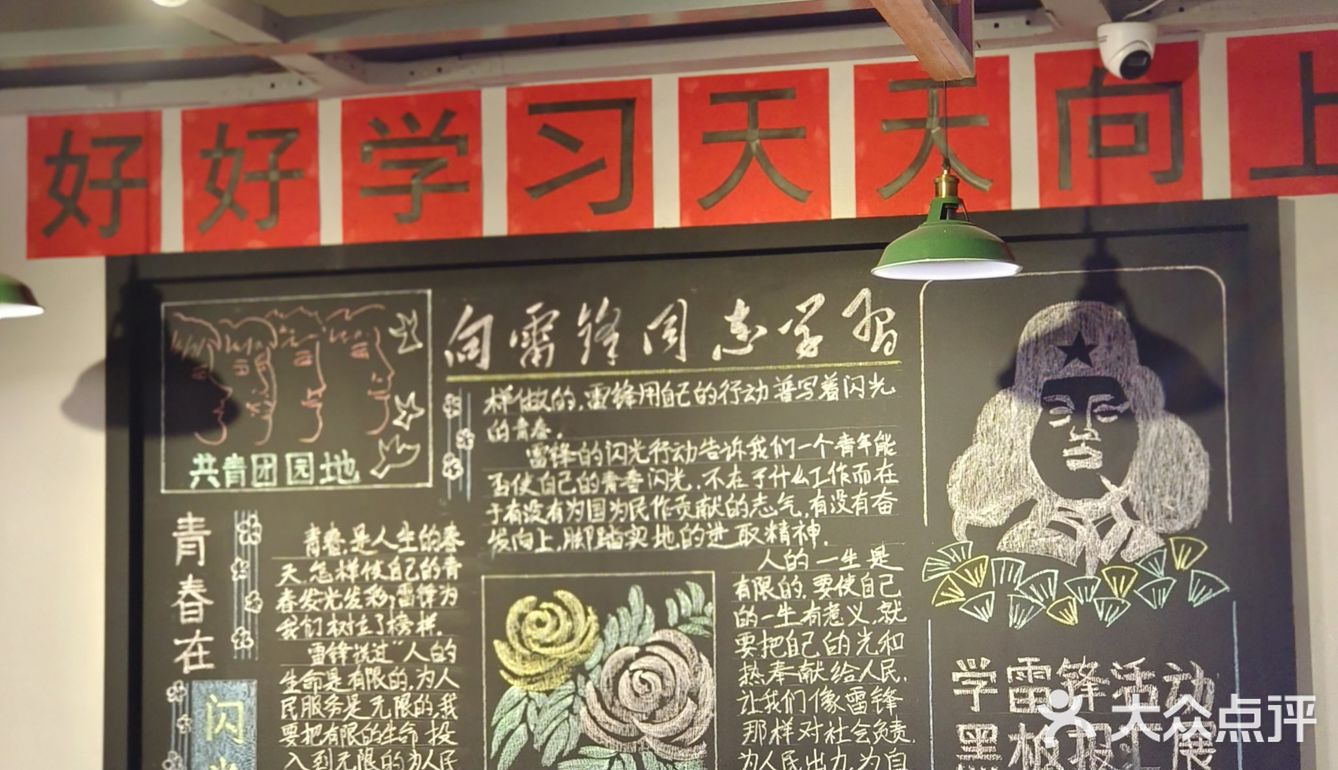 好好学习天天向上
向雷锋同志学习
共青团园地
青春在
闪
青春,是人生的春
天,怎样使自己的青
春发光发彩,雷锋为
我们树立了榜样.
雷锋说过"人的
生命是有限的,为人
民服务是无限的,我
要把有限的生命投
入到无限的为人民
样做的,雷锋用自己的行动普写着闪光
的青春.
雷锋的闪光行动告诉我们一个青年能
否使自己的青春闪光,不在于什么工作而在
于有没有为国为民作贡献的志气,有没有奋
发向上,脚踏实地的进取精神.
人的一生是
有限的,要使自己
的一生有意义,就
要把自己的光和
热奉献给人民,
让我们像雷锋
那样对社会负责,
为人民出力,为自
学雷锋活动
黑板报
大众点评